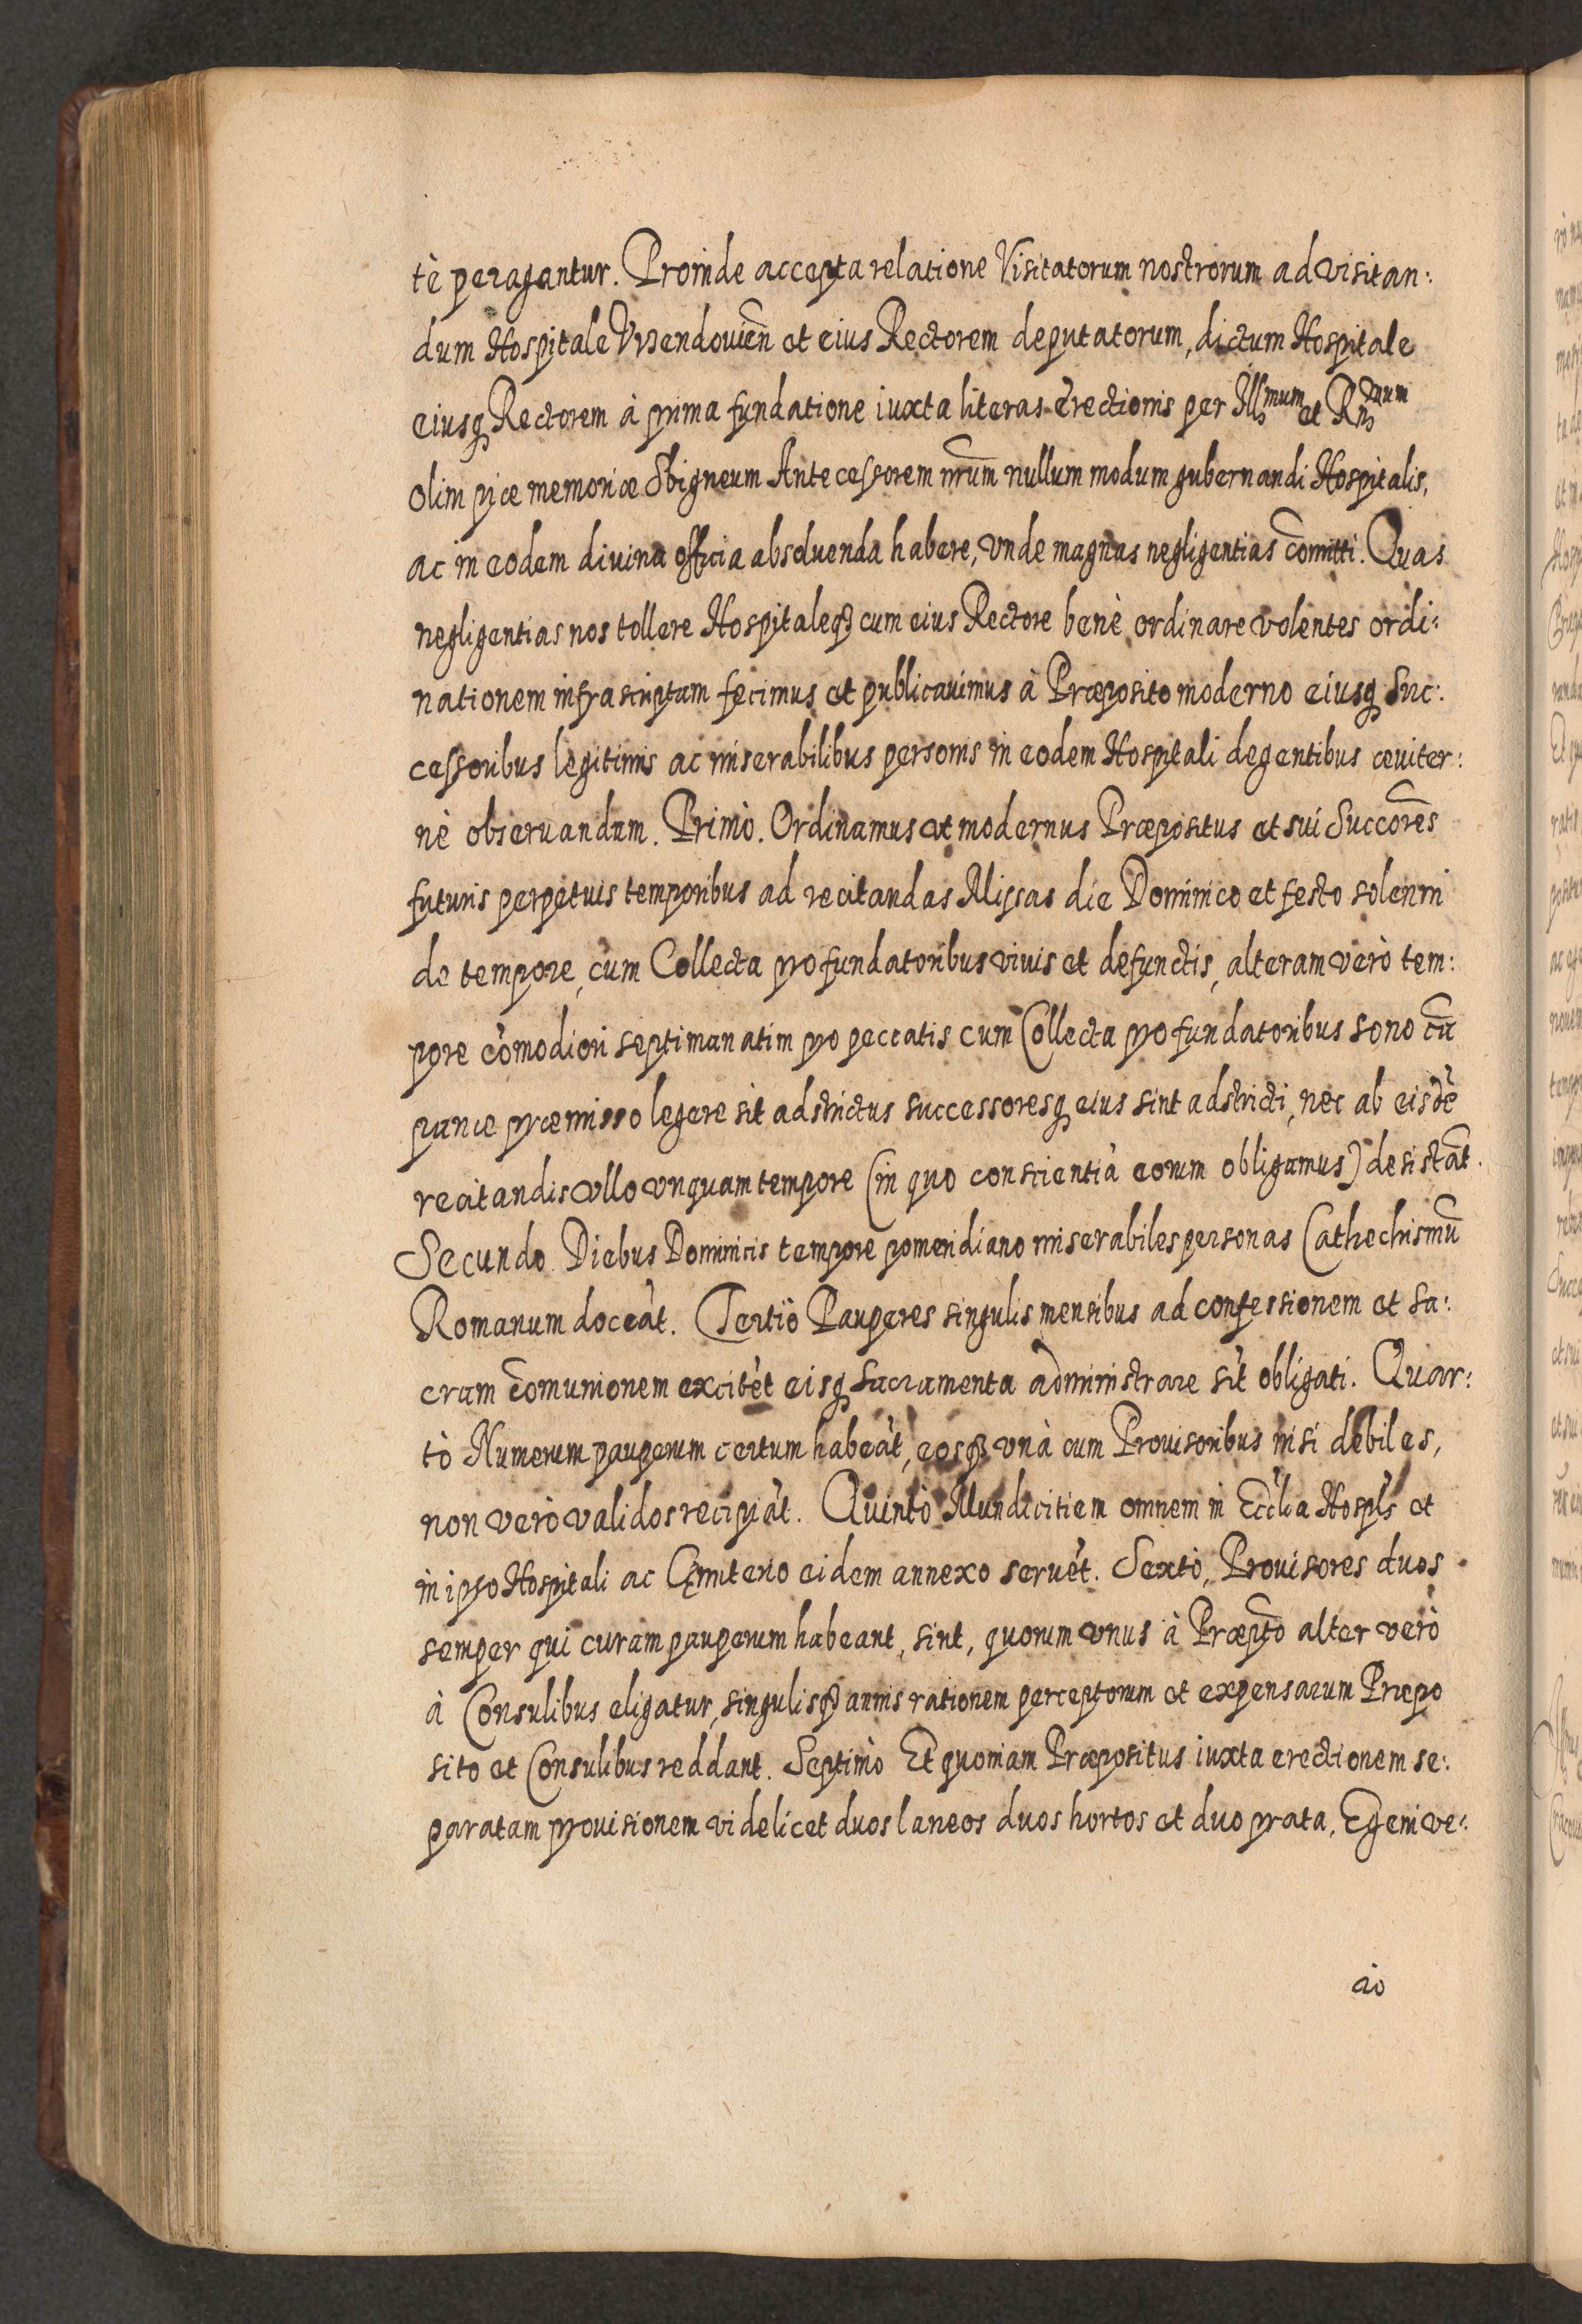 tè peragantur. Proinde accepta relatione Visitatorum nostrorum ad visitan:
dum Hospitale Vrzendouien̄ et eius Rectorem deputatorum, dictum Hospitale
eiusq Rectorem à prima fundatione iuxta literas erectionis per Illmum et Rndum
olim piæ memoriæ Sbigneum Antecessorem nr̄um nullum modum gubernandi Hospitalis,
ac in eodem divina officia absoluenda habere, vnde magnas negligentias com̄itti. Quas
negligentias nos tollere Hospitaleq3 cum eius Rectore benè ordinare volentes ordi:
nationem infrascriptam fecimus et publicauimus à Præposito moderno eiusq Suc:
cessoribus legitimis ac miserabilibus personis in eodem Hospitali degentibus æuiter:
nè obseruandam. Primò. Ordinamus ut modernus Præpositus et sui Succores̄
futuris perpetuis temporibus ad recitandas Missas die Dominico et festo solenni
de tempore, cum Collecta pro fundatoribus viuis et defunctis, alteram verò tem:
pore cōmodiori septimanatim pro peccatis cum Collecta pro fundatoribus sono cā
panæ præmisso legere sit adstrictus successoresq eius sint adstricti, nec ab eisdē
recitandis vllo vnquam tempore (in quo conscientiā eorum obligamus) desistāt.
Secundo Diebus Dominicis tempore pomeridiano miserabiles personas Cathechismū
Romanum doceāt. Tertiò Pauperes singulis mensibus ad confessionem et sa:
cram com̄unionem excitēt eisq Sacramenta administrare sīt obligati. Quar:
tò Numerum pauperum certum habeāt, eosq3 vnà cum Prouisoribus nisi debiles,
non verò validos recipiāt. Quintò Mundicitiem omnem in Eccl̄ia Hospl̄s et
in ipso Hospitali ac Cęmiterio eidem annexo seruēt. Sextò, Prouisores duos
semper qui curam pauperum habeant, sint, quorum vnus à Præpt̄o alter verò
à Consulibus eligatur, singulisq3 annis rationem perceptorum et expensarum Præpo
sito et Consulibus reddant. Septimò Et quoniam Præpositus iuxta erectionem se:
paratam prouisionem videlicet duos laneos duos hortos et duo prata, Egeni ve: